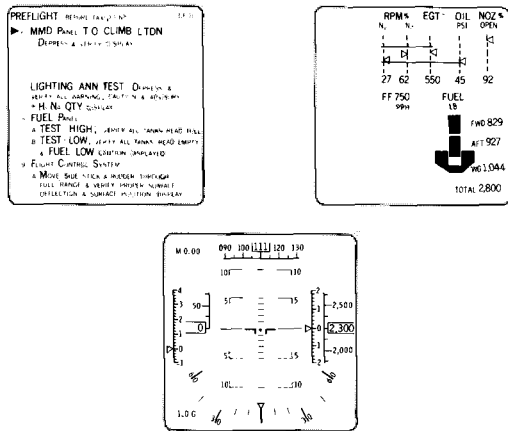 PREFLIGHT BEFORE
MMD PANEL T O CLIMB LTDN
DEPRESS & VERIFY DISPLAY
LIGHTING ANN TEST DEPRESS &
VERIFY ALL WARNING, CAUTION & ADVISORY
QTY DISPLAY
FUEL PANEL
A TEST HIGH, VERIFY ALL TANKS READ FULL
B TEST LOW, VERIFY ALL TANKS READ EMPTY
& FUEL LOW CAUTION DISPLAYED
9 FLIGHT CONTROL SYSTEM
A MOVE SIDE STICK & RUDDER THROUGH
FULL RANGE & VERIFY PROPER SURFACE
DEFLECTION & SURFACE POSITION DISPLAY
RPM % EGT OIL NOZ %
PSI OPEN
27 62 550 45 92
FF 750 FUEL
PPH LB
FWD 829
AFT 927
WG 1,044
TOTAL 2,800
M 0.00 090 100 111 120 130
10 10
4 2
50 5 5 2,500
3 1
2
1
0 0 0 2,300
1 1 2,000
5 5
2
60 60
10 10
1.0 G 30 30